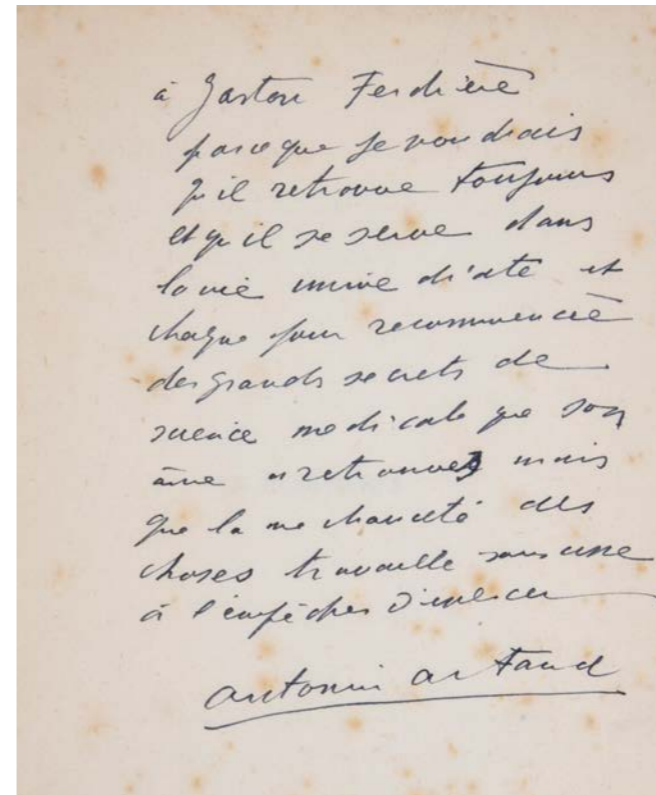 à Gaston Ferdière
parce que je voudrais
qu'il retrouve toujours
et qu'il se serve dans
la vie immédiate et
chaque jour recommencée
des grands secrets de
science médicale que son
âme a retrouvés mais
que la méchanceté des
choses travaille sans cesse
à l'empêcher d'exercer
antonin artaud